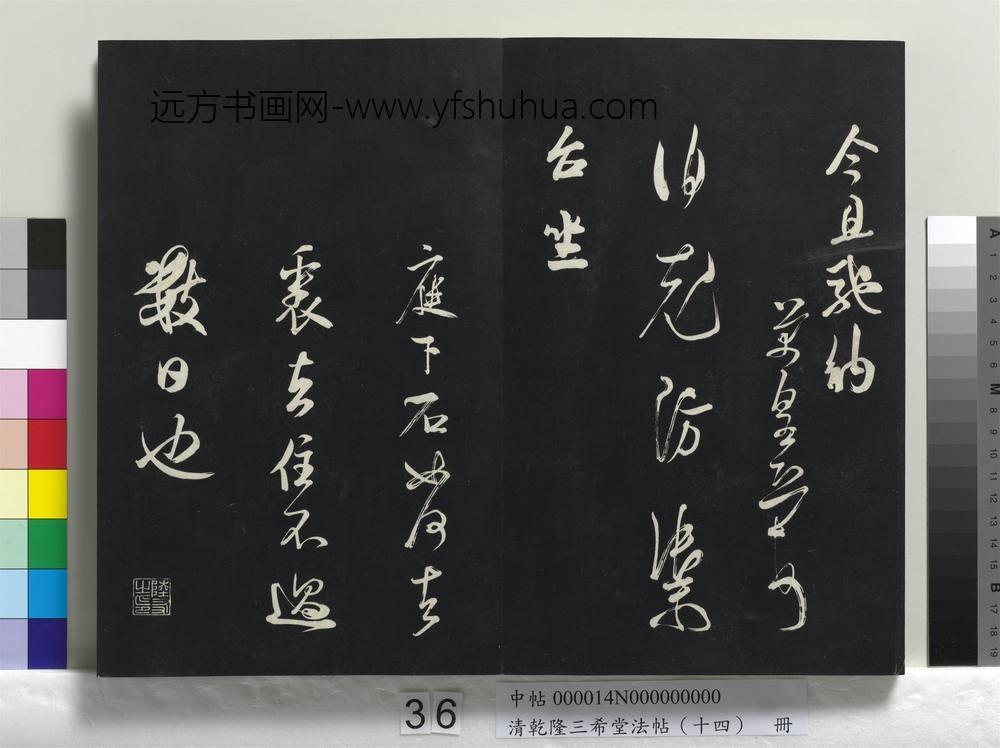 远方书画网-www.yfshuhua.com
今且馳納
芾皇恐
伯充防禦
台坐
庭下石如何去
裏去住不過
數日也
陸友之印
36
中帖 000014N000000000
清乾隆三希堂法帖（十四） 冊
A 1 2 3 4 5 6 M 8 9 10 11 12 13 14 15 B 17 18 19